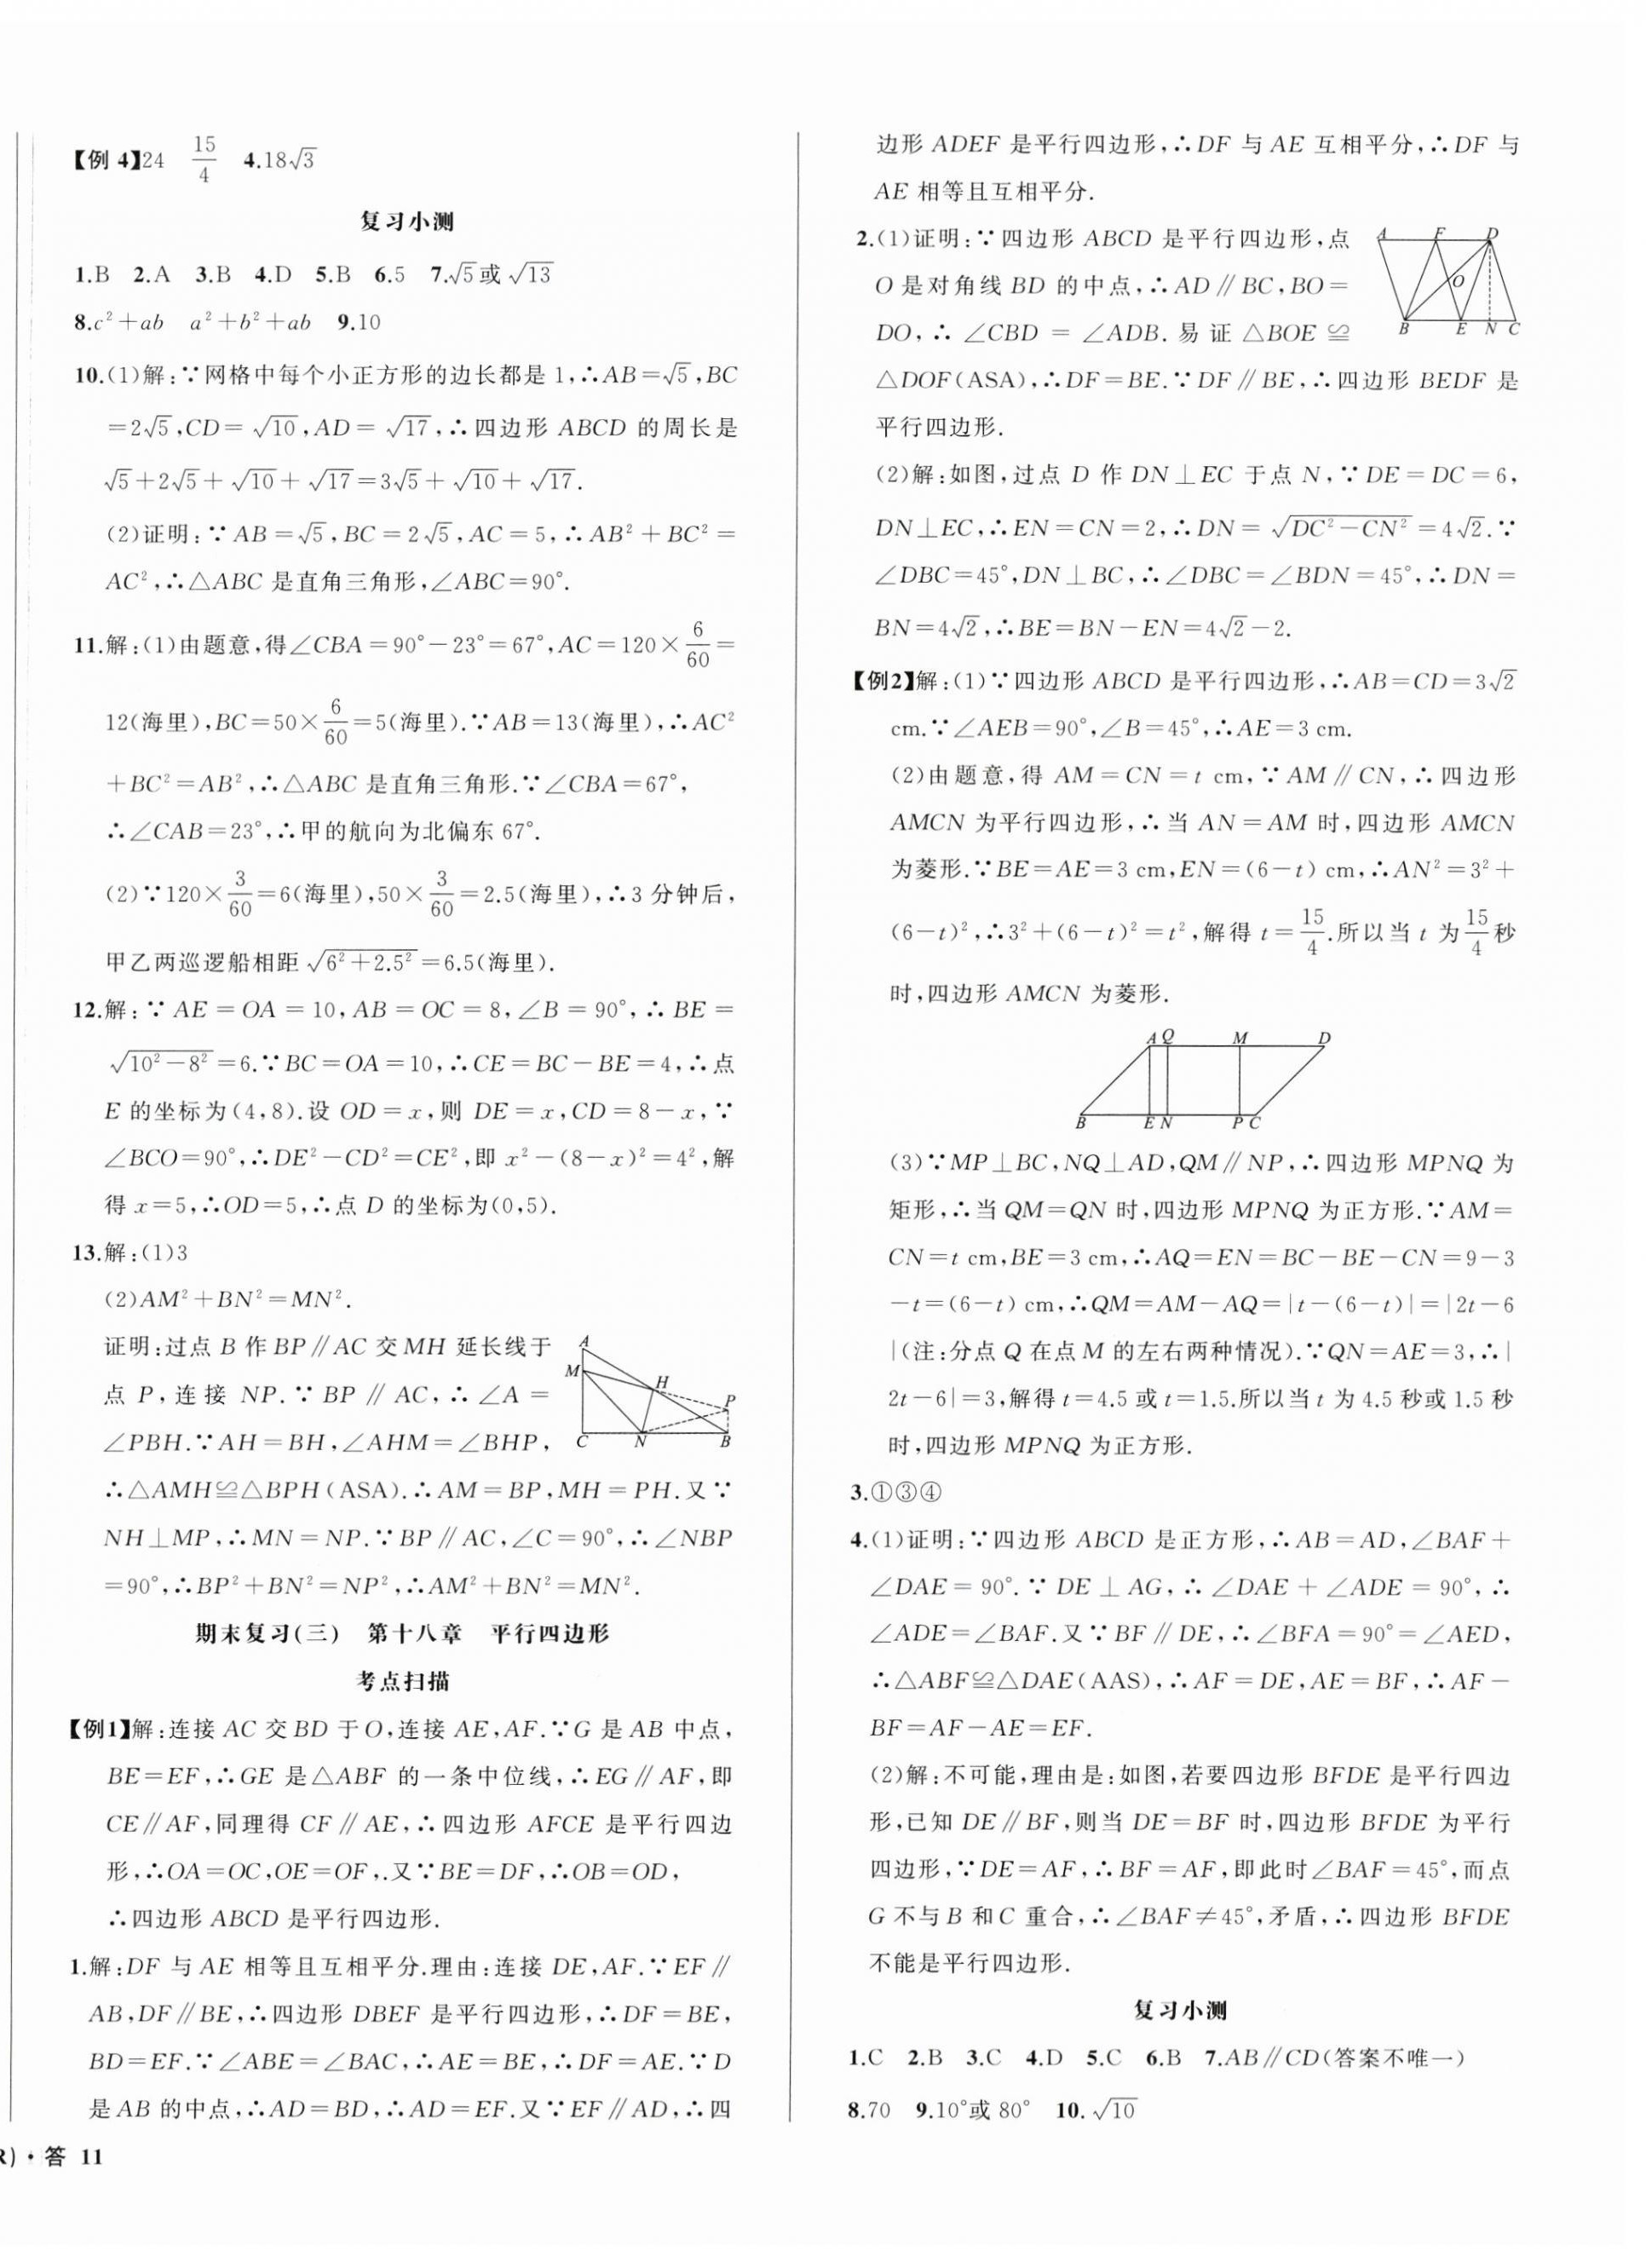 【例 4】24　15/4　4.18√3
复习小测
1.B　2.A　3.B　4.D　5.B　6.5　7.√5或√13
8.c²+ab　a²+b²+ab　9.10
10.(1)解:∵网格中每个小正方形的边长都是 1,∴AB=√5,BC
=2√5,CD=√10,AD=√17,∴四边形 ABCD 的周长是
√5+2√5+√10+√17=3√5+√10+√17.
(2)证明:∵AB=√5,BC=2√5,AC=5,∴AB²+BC²=
AC²,∴△ABC 是直角三角形,∠ABC=90°.
11.解:(1)由题意,得∠CBA=90°-23°=67°,AC=120×6/60=
12(海里),BC=50×6/60=5(海里).∵AB=13(海里),∴AC²
+BC²=AB²,∴△ABC 是直角三角形.∵∠CBA=67°,
∴∠CAB=23°,∴甲的航向为北偏东 67°.
(2)∵120×3/60=6(海里),50×3/60=2.5(海里),∴3 分钟后,
甲乙两巡逻船相距√(6²+2.5²)=6.5(海里).
12.解:∵AE=OA=10,AB=OC=8,∠B=90°,∴BE=
√(10²-8²)=6.∵BC=OA=10,∴CE=BC-BE=4,∴点
E 的坐标为(4,8).设 OD=x,则 DE=x,CD=8-x,∵
∠BCO=90°,∴DE²-CD²=CE²,即 x²-(8-x)²=4²,解
得 x=5,∴OD=5,∴点 D 的坐标为(0,5).
13.解:(1)3
(2)AM²+BN²=MN².
证明:过点 B 作 BP∥AC 交 MH 延长线于
点 P,连接 NP.∵BP∥AC,∴∠A=
∠PBH.∵AH=BH,∠AHM=∠BHP,
A
M
H
P
C
N
B
∴△AMH≌△BPH(ASA).∴AM=BP,MH=PH.又∵
NH⊥MP,∴MN=NP.∵BP∥AC,∠C=90°,∴∠NBP
=90°,∴BP²+BN²=NP²,∴AM²+BN²=MN².
期末复习(三)　第十八章　平行四边形
考点扫描
【例1】解:连接 AC 交 BD 于 O,连接 AE,AF.∵G 是 AB 中点,
BE=EF,∴GE 是△ABF 的一条中位线,∴EG∥AF,即
CE∥AF,同理得 CF∥AE,∴四边形 AFCE 是平行四边
形,∴OA=OC,OE=OF,.又∵BE=DF,∴OB=OD,
∴四边形 ABCD 是平行四边形.
1.解:DF 与 AE 相等且互相平分.理由:连接 DE,AF.∵EF∥
AB,DF∥BE,∴四边形 DBEF 是平行四边形,∴DF=BE,
BD=EF.∵∠ABE=∠BAC,∴AE=BE,∴DF=AE.∵D
是 AB 的中点,∴AD=BD,∴AD=EF.又∵EF∥AD,∴四
R)·答 11
边形 ADEF 是平行四边形,∴DF 与 AE 互相平分,∴DF 与
AE 相等且互相平分.
2.(1)证明:∵四边形 ABCD 是平行四边形,点
O 是对角线 BD 的中点,∴AD∥BC,BO=
DO,∴∠CBD=∠ADB.易证△BOE≌
A F D
O
B E N C
△DOF(ASA),∴DF=BE.∵DF∥BE,∴四边形 BEDF 是
平行四边形.
(2)解:如图,过点 D 作 DN⊥EC 于点 N,∵DE=DC=6,
DN⊥EC,∴EN=CN=2,∴DN=√(DC²-CN²)=4√2.∵
∠DBC=45°,DN⊥BC,∴∠DBC=∠BDN=45°,∴DN=
BN=4√2,∴BE=BN-EN=4√2-2.
【例2】解:(1)∵四边形 ABCD 是平行四边形,∴AB=CD=3√2
cm.∵∠AEB=90°,∠B=45°,∴AE=3 cm.
(2)由题意,得 AM=CN=t cm,∵AM∥CN,∴四边形
AMCN 为平行四边形,∴当 AN=AM 时,四边形 AMCN
为菱形.∵BE=AE=3 cm,EN=(6-t) cm,∴AN²=3²+
(6-t)²,∴3²+(6-t)²=t²,解得 t=15/4.所以当 t 为15/4秒
时,四边形 AMCN 为菱形.
A Q M D
B E N P C
(3)∵MP⊥BC,NQ⊥AD,QM∥NP,∴四边形 MPNQ 为
矩形,∴当 QM=QN 时,四边形 MPNQ 为正方形.∵AM=
CN=t cm,BE=3 cm,∴AQ=EN=BC-BE-CN=9-3
-t=(6-t) cm,∴QM=AM-AQ=|t-(6-t)|=|2t-6
|(注:分点 Q 在点 M 的左右两种情况).∵QN=AE=3,∴|
2t-6|=3,解得 t=4.5 或 t=1.5.所以当 t 为 4.5 秒或 1.5 秒
时,四边形 MPNQ 为正方形.
3.①③④
4.(1)证明:∵四边形 ABCD 是正方形,∴AB=AD,∠BAF+
∠DAE=90°.∵DE⊥AG,∴∠DAE+∠ADE=90°,∴
∠ADE=∠BAF.又∵BF∥DE,∴∠BFA=90°=∠AED,
∴△ABF≌△DAE(AAS),∴AF=DE,AE=BF,∴AF-
BF=AF-AE=EF.
(2)解:不可能,理由是:如图,若要四边形 BFDE 是平行四边
形,已知 DE∥BF,则当 DE=BF 时,四边形 BFDE 为平行
四边形,∵DE=AF,∴BF=AF,即此时∠BAF=45°,而点
G 不与 B 和 C 重合,∴∠BAF≠45°,矛盾,∴四边形 BFDE
不能是平行四边形.
复习小测
1.C　2.B　3.C　4.D　5.C　6.B　7.AB∥CD(答案不唯一)
8.70　9.10°或 80°　10.√10